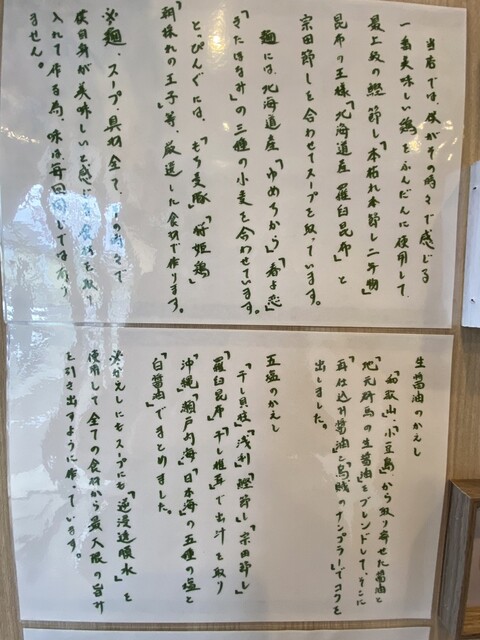 当店では、僕がその時々で感じる
一番美味しい鶏をふんだんに使用して、
最上級の鰹節し「本枯れ本節し二年物」
昆布の王様「北海道産 羅臼昆布」と
宗田節しを合わせてスープを取っています。
麺には、北海道産「ゆめちから」「春よ恋」
「きたほなみ」の三種の小麦を合わせています。
と、ぴんぐには、「もち麦豚」「付姫鶏」
「朝採れの王子」等、厳選した食材で作ります。
※麺、スープ、具材全て、その時々で
僕自身が美味しいと感じる食材を取り
入れて作る為、味は毎回同じでは有り
ません。
生醤油のかえし
「和歌山」「小豆島」から取り寄せた醤油と
「地元群馬の生醤油」をブレンドして、そこに
「再仕込み醤油」と「烏賊のナンプラー」でコクを
出しました。
五塩のかえし
「干し貝柱」「浅利」「鰹節し」「宗田節し」
「羅臼昆布」「干し椎茸」で出汁を取り
「沖縄」「瀬戸内海」「日本海」の五種の塩と
「白醤油」でまとめました。
※かえしにもスープにも「逆浸透膜水」を
使用して全ての食材から最大限の旨み
を引き出すように作っています。